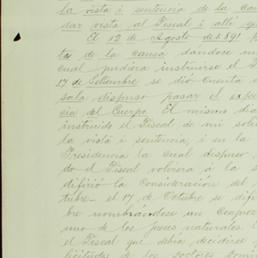 la vista i sentencia de la cau
dar vista al Fiscal i allí que
El 12 de Agosto de 1891
to de la causa dándose
cual pudiera instruirse el
17 de Setiembre se dió cuenta
sala dispuso pasar el espe
cia del Cuerpo. El mismo dia
instruido el Fiscal de mi soli
la vista i sentencia, i en la
Presidencia la cual dispuso
do el Fiscal volviera á la
difirió la Consideracion del
tubre. el 17 de Octubre se difi
bre nombrándose un Conjuez
uno de los Jueces naturales
el Fiscal que debia decidirse
licitadas de los